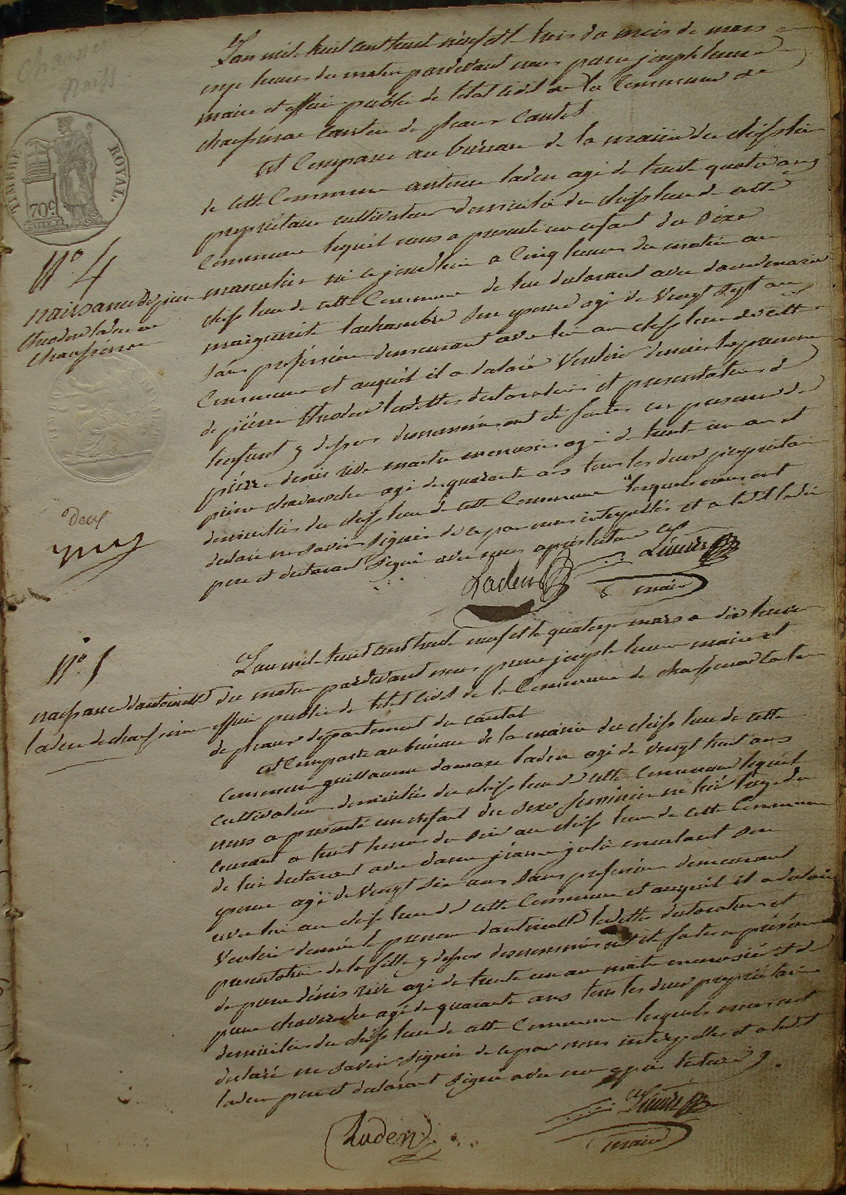 Chaussenac
naiss.
TIMBRE ROYAL
70c
L'an mil huit cent trente neuf et le trois du mois de mars
onze heures du matin pardevant nous pierre joseph
maire et officier public de l'état civil de la Commune de
chaussenac canton de pleaux Cantal
est Comparu au bureau de la mairie du cheflieu
de cette Commune antoine laden agé de trente quatre ans
propriétaire cultivateur domicilié du cheflieu de cette
Commune lequel nous a presenté un enfant du sexe
N° 4
naissance de pierre
theodore laden de
chaussenac
masculin né ce jourdhui a Cinq heures du matin au
cheflieu de cette Commune de lui declarant avec dame marie
marguerite lachambre son epouse agé de Vingt sept ans
sans profession demeurant avec lui au cheflieu de cette
Commune et auquel il a déclaré Vouloir donner les prenoms
de pierre theodore lesdittes declaration et presentation de
lenfant y dessus denommé ont été faites en presence de
pierre denis rive maitre menusier agé de trente un ans et
pierre chavaroche agé de quarante ans tous les deux propriétaires
domiciliés du cheflieu de cette Commune lesquels nous ont
declaré ne savoir signer de ce par nous interpellés et a ledit laden
pere et declarant signé avec nous apres lecture
deux
Laden
maire
N° 5
naissance d'antoinette
laden de chaussenac
L'an mil huit cent trente neuf et le quatorze mars a dix heures
du matin pardevant nous pierre joseph maire et
officier public de l'état civil de la Commune de chaussenac canton
de pleaux departement du cantal
est Comparu au bureau de la mairie du cheflieu de cette
Commune guillaume laden agé de Vingt huit ans
cultivateur domicilié du cheflieu de cette Commune lequel
nous a presenté un enfant du sexe feminin né hier treize du
courant a huit heures du soir au cheflieu de cette Commune
de lui declarant avec dame jeanne julie son
epouse agé de Vingt six ans sans profession demeurant
avec lui au cheflieu de cette Commune et auquel il a declaré
Vouloir donner le prenom d'antoinette lesdittes declaration et
presentation de la fille y dessus denommée ont été faites en présence
de pierre denis rive agé de trente un ans maitre menusié et de
pierre chavaroche agé de quarante ans tous les deux propriétaires
domiciliés du cheflieu de cette Commune lesquels nous ont
declaré ne savoir signer de ce par nous interpellés et a ledit
laden pere et declarant signé avec nous apres lecture
Laden
maire